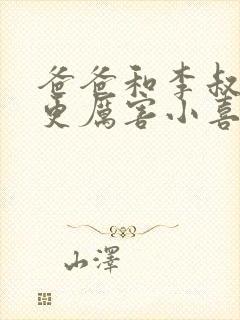 爸爸和李叔
更厲害小喜
山澤